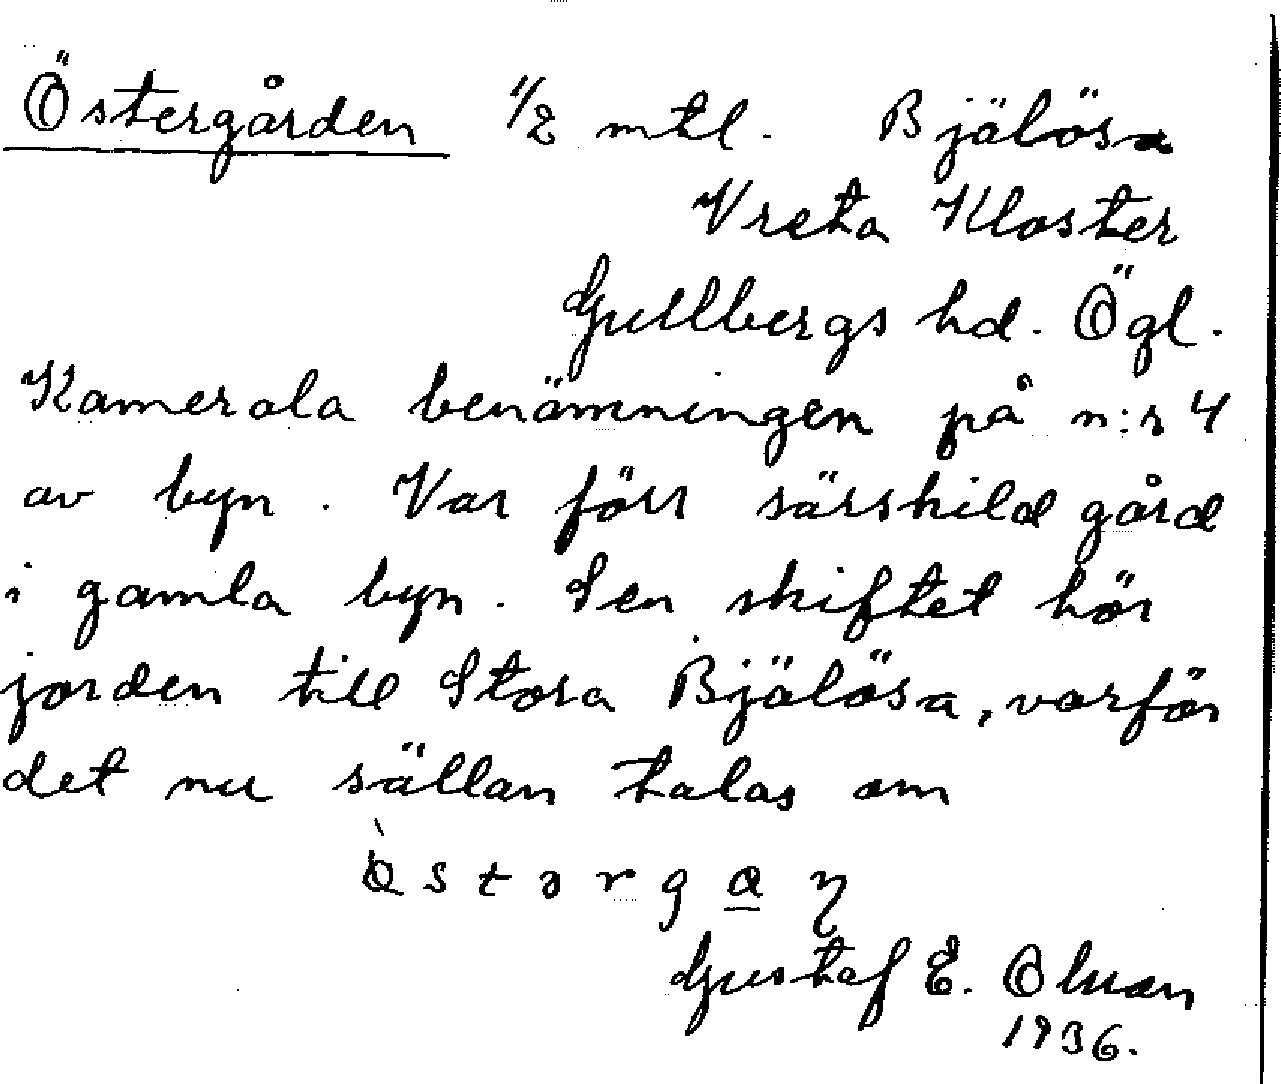 Östergården 1/2 mtl. Bjälösa
Vreta Kloster
Gullbergs hd. Ögl.
Kamerala benämningen på n:r 4
av byn. Var förr särskild gård
i gamla byn. Sen skiftet hör
jorden till Stora Bjälösa, varför
det nu sällan talas om
Gustaf E. Olsson
1936.